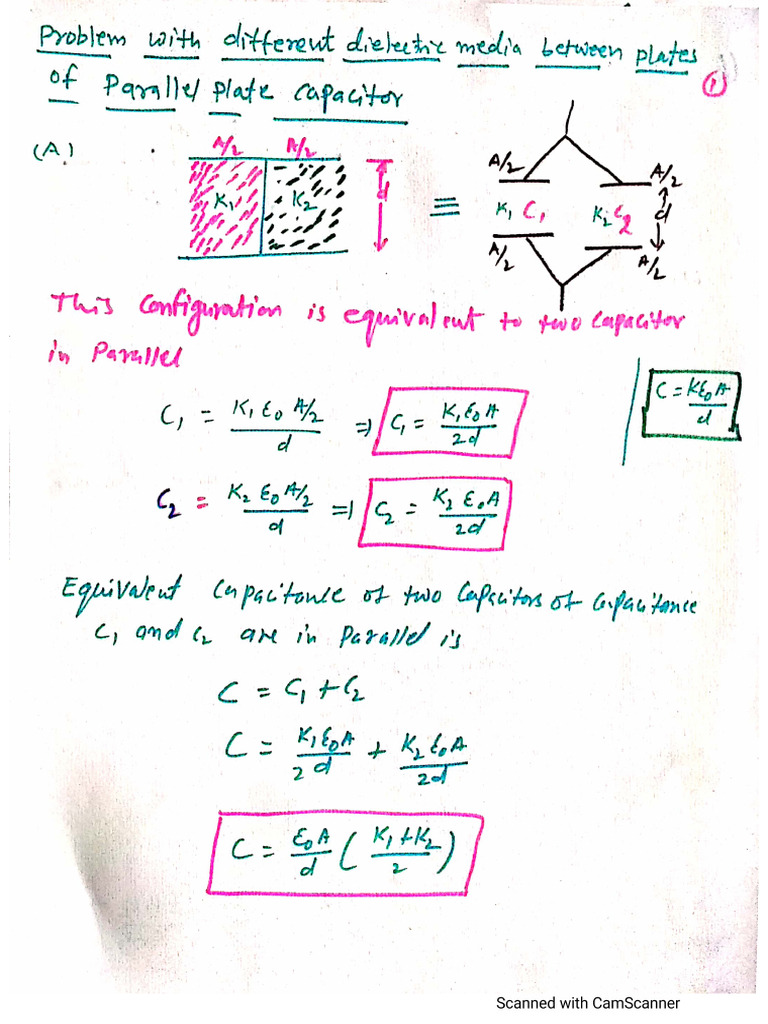 Problem with different dielectric media between plates
of Parallel plate capacitor
①
(A)
A/2 A/2
K₁ K₂
d
≡
A/2 A/2
K₁ C₁ K₂ C₂ d
A/2 A/2
This configuration is equivalent to two capacitor
in Parallel
C = Kε₀A/d
C₁ = K₁ε₀ A/2 / d ⇒ C₁ = K₁ε₀A / 2d
C₂ = K₂ ε₀ A/2 / d ⇒ C₂ = K₂ ε₀A / 2d
Equivalent Capacitance of two Capacitors of Capacitance
C₁ and C₂ are in Parallel is
C = C₁ + C₂
C = K₁ε₀A / 2d + K₂ε₀A / 2d
C = ε₀A / d ( K₁+K₂ / 2 )
Scanned with CamScanner